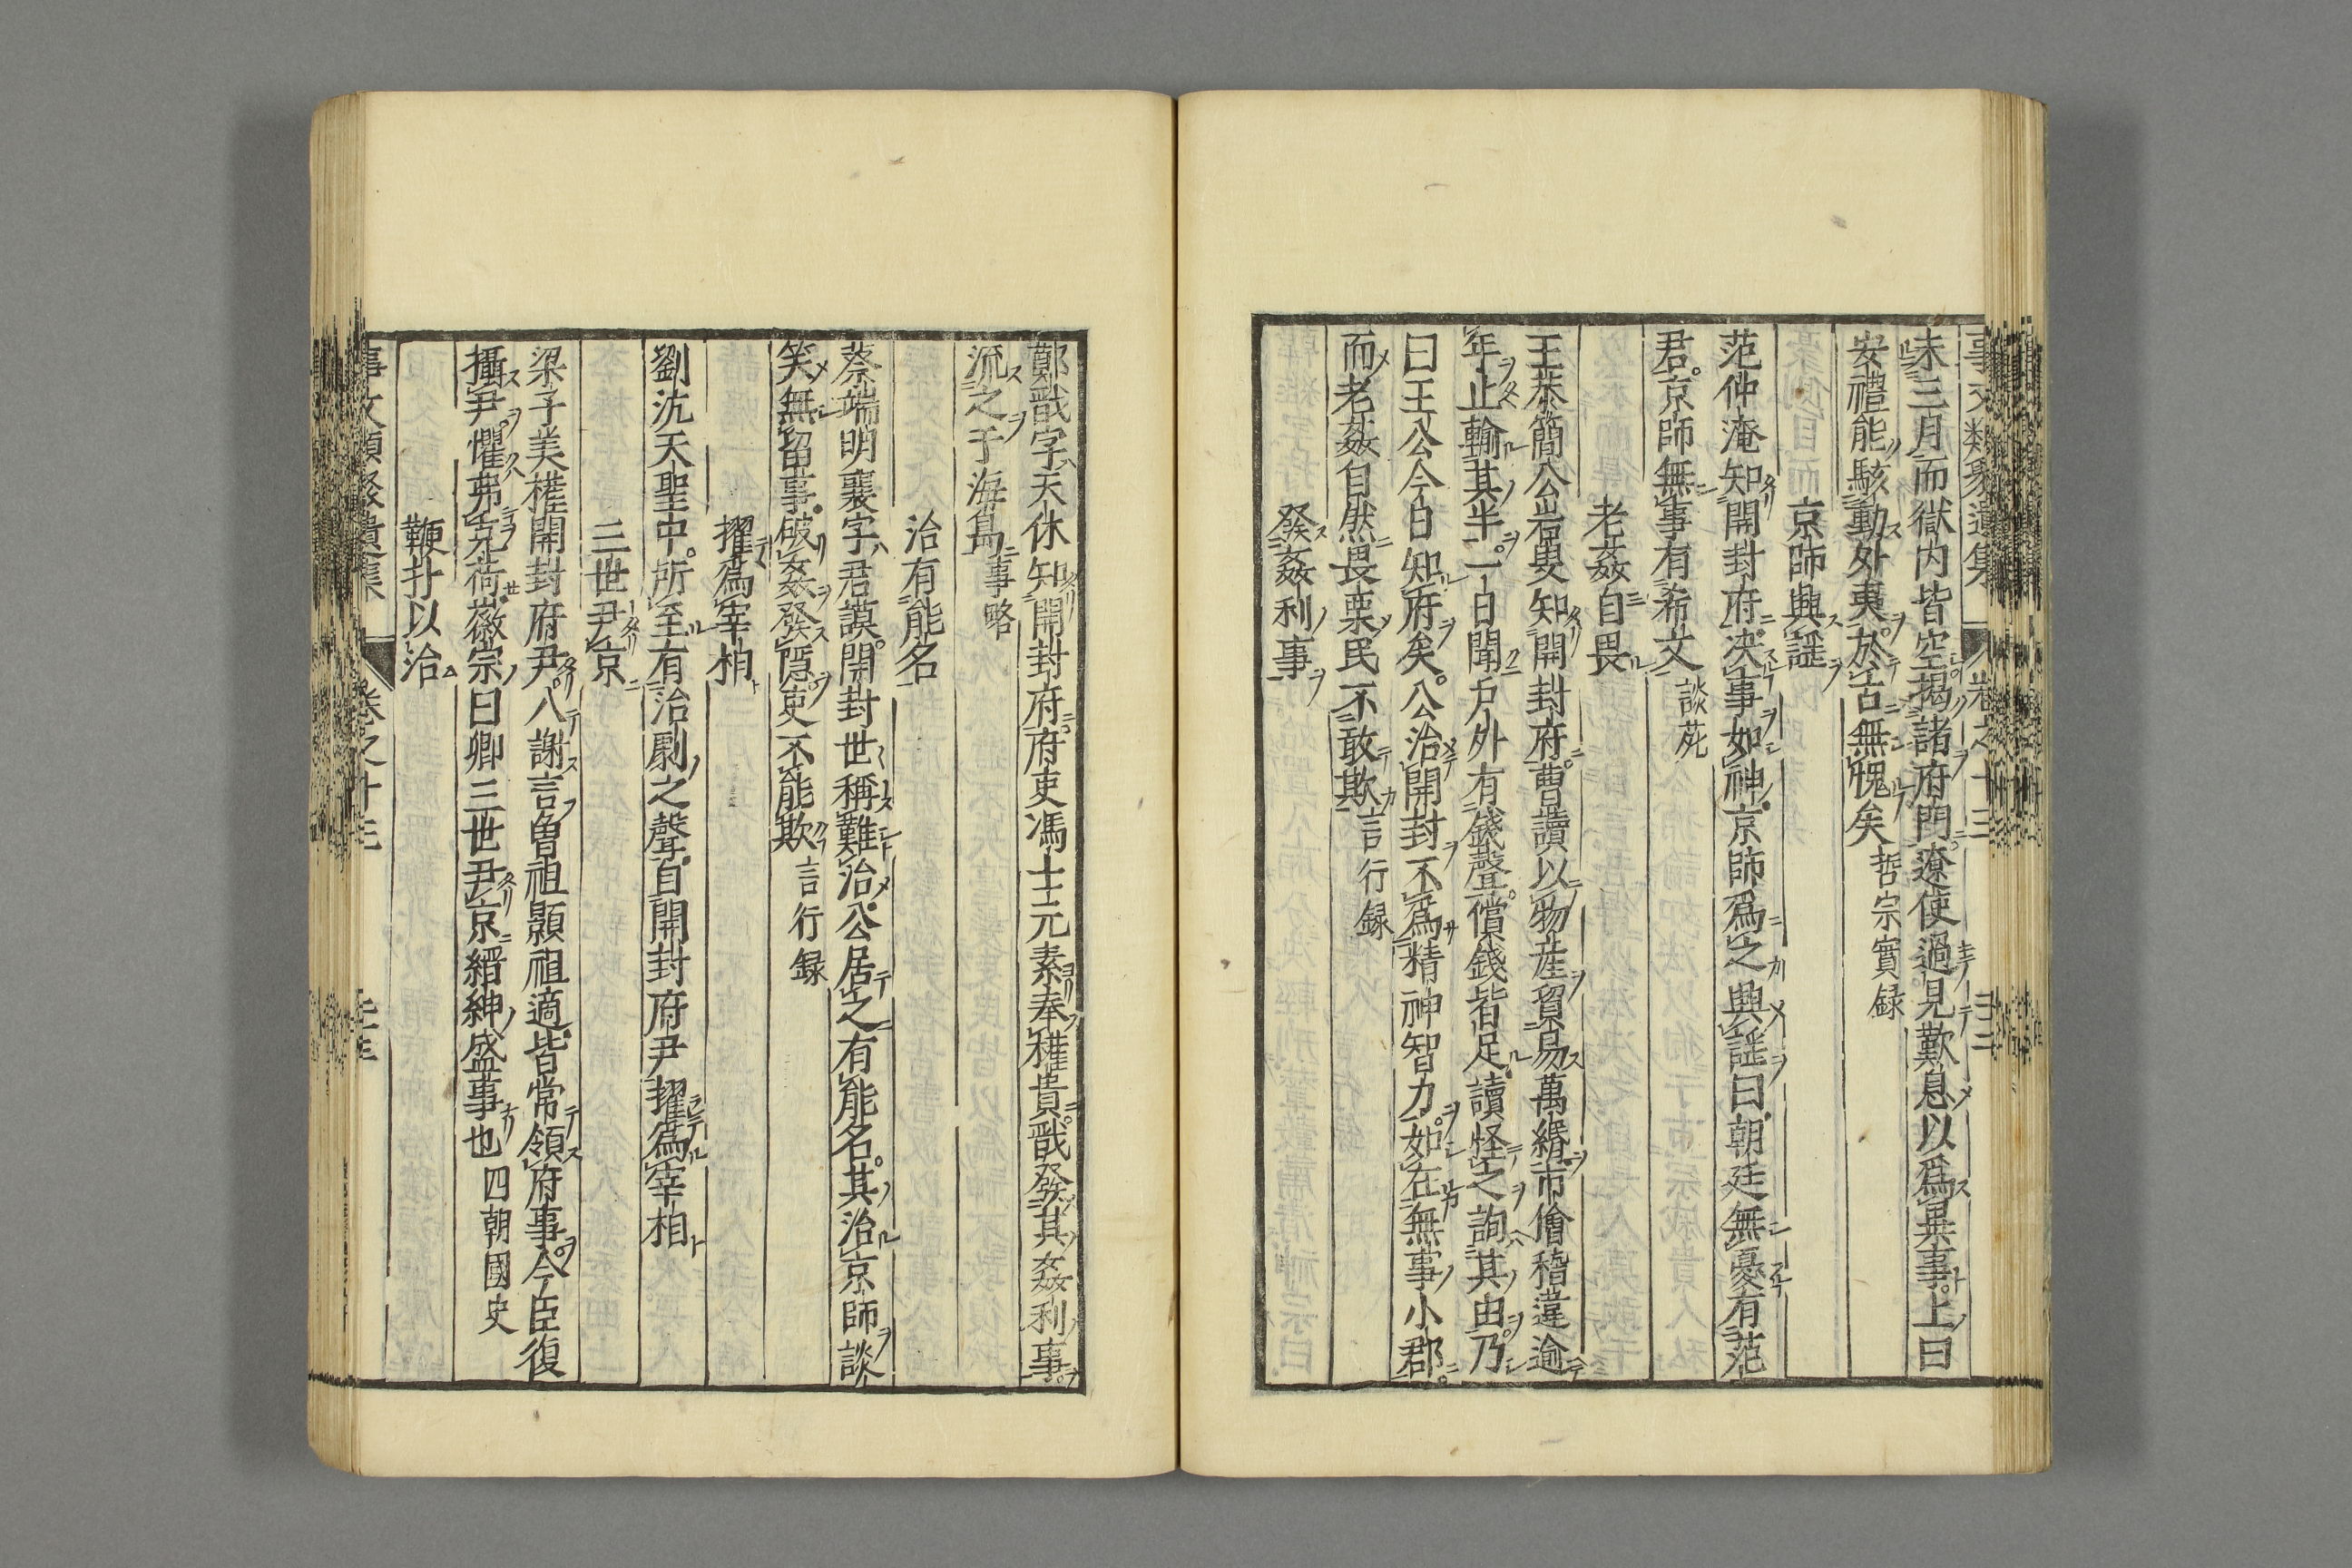 未三月而獄内皆空揭諸府門遼使過見歎息以爲異事上曰
安禮能駭動外夷於古無愧矣 哲宗實録
京師興謡
范仲淹知開封府决事如神京師爲之興謡曰朝廷無憂有范
君京師無事有希文 談苑
老姦自畏
王恭簡公岩叟知開封府曹讀以物産貿易萬緡市儈稽違逾
年止輸其半一日聞戶外有錢聲償錢皆足讀怪之詢其由乃
曰王公今日知府矣公治開封不爲精神智力如在無事小郡
而老姦自然畏栗民不敢欺 言行録
發姦利事
鄭戩字天休知開封府府吏馮士元素奉權貴戩發其姦利事
流之于海島 事略
治有能名
蔡端明襄字君謨開封世稱難治公居之有能名其治京師談
笑無留事破姦發隱吏不能欺 言行録
擢爲宰相
劉沆天聖中所至有治劇之聲自開封府尹擢爲宰相
三世尹京
梁子美權開封府尹入謝言魯祖顥祖適皆常領府事今臣復
攝尹懼弗克荷徽宗曰卿三世尹京縉紳盛事也 四朝國史
鞭扑以治
事文類聚遺集 卷之十三